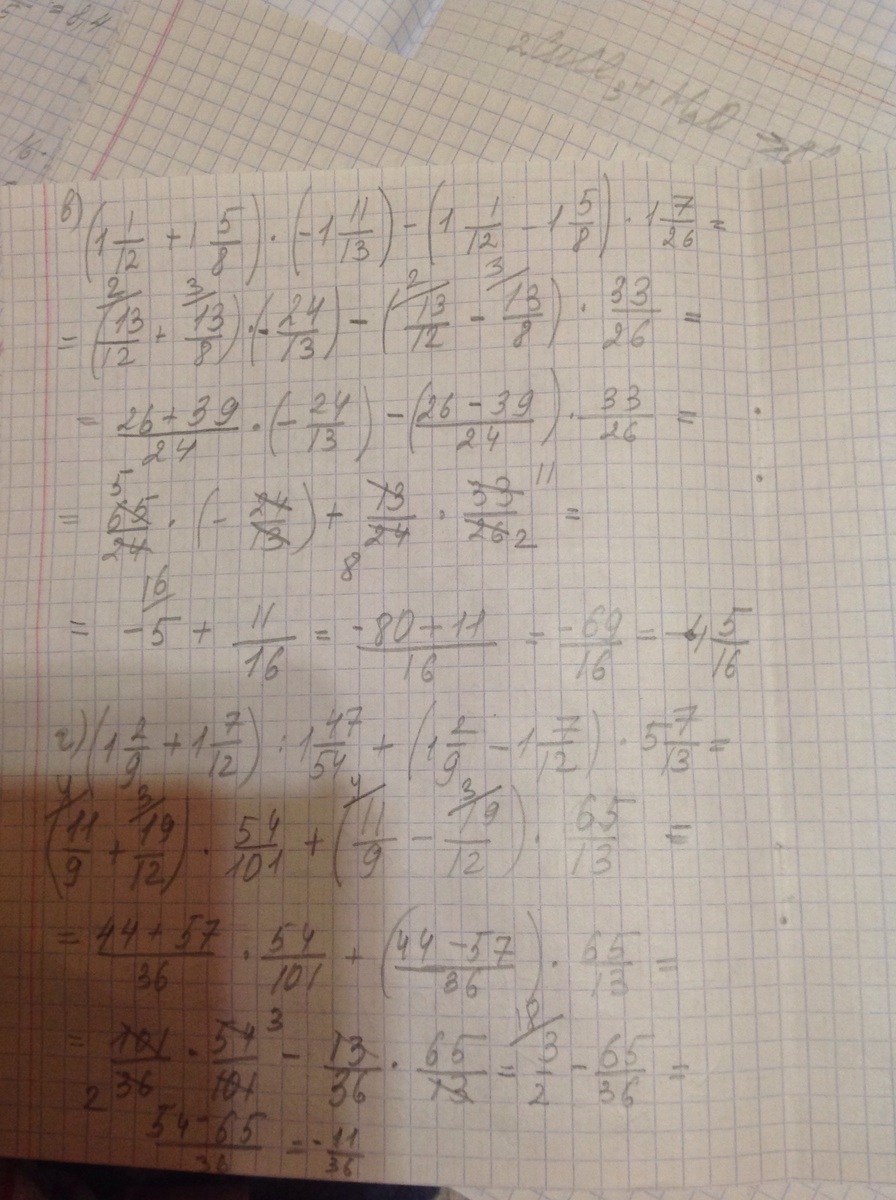 5 = 8,4
16.
2 Cl₃ + H₂O →
в) (1 1/12 + 1 5/8) · (-1 11/13) - (1 1/12 - 1 5/8) · 1 7/26 =
= (²⁄13/12 + ³⁄13/8) · (-24/13) - (²⁄13/12 - ³⁄13/8) · 33/26 =
= (26 + 39)/24 · (-24/13) - ((26 - 39)/24) · 33/26 =
= 65/24 · (-24/13) + 13/24 · 33/26 = 5 8 11 2
= ¹⁶⁄-5 + 11/16 = (-80 + 11)/16 = -69/16 = -4 5/16
г) (1 2/9 + 1 7/12) : 1 47/54 + (1 2/9 - 1 7/12) · 5 7/13 =
(⁴⁄11/9 + ³⁄19/12) · 54/101 + (⁴⁄11/9 - ³⁄19/12) · 65/13 =
= (44 + 57)/36 · 54/101 + ((44 - 57)/36) · 65/13 =
= 101/36 · 54/101 - 13/36 · 65/13 = ¹⁸⁄3/2 - 65/36 = 2 3
(54 - 65)/36 = -11/36